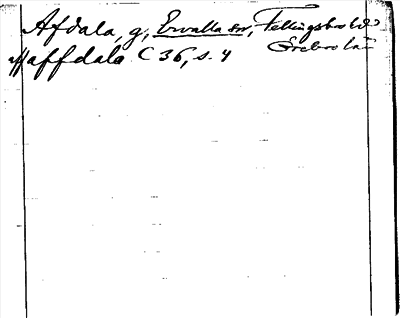 Afdala, g, Ervalla sn, Fellingsbro hd
Örebro län
Haffdala C 36, s. 4